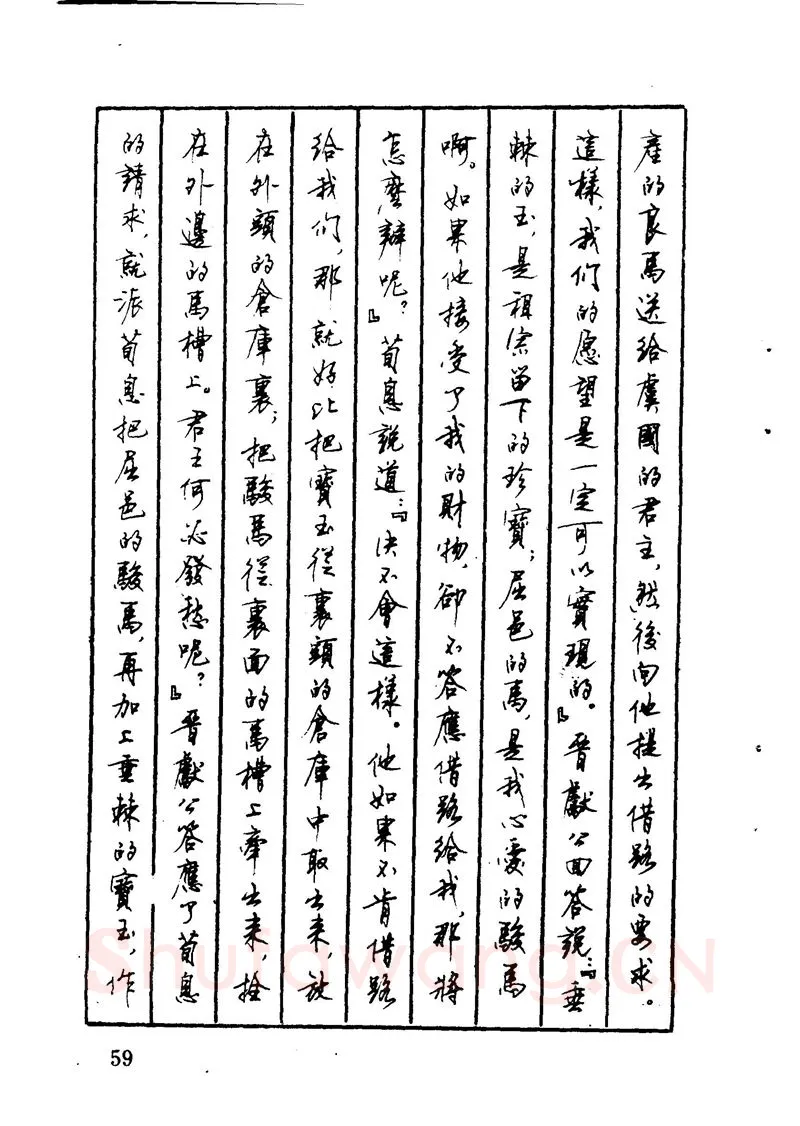 產的良馬送給虞國的君主，然後向他提出借路的要求。
這樣，我们的愿望是一定可以實現的。』晉獻公回答說：『垂
棘的玉，是祖宗留下的珍寶；屈邑的馬，是我心愛的駿馬
啊。如果他接受了我的財物，卻不答應借路給我，那將
怎麼辦呢？』荀息說道：『决不會這樣。他如果不肯借路
給我们，那就好比把寶玉從裏頭的倉庫中取出来，放
在外頭的倉庫裏；把駿馬從裏面的馬槽上牽出来，拴
在外邊的馬槽上。君王何必發愁呢？』晉獻公答應了荀息
的請求，就派荀息把屈邑的駿馬，再加上垂棘的寶玉，作
59
Shufawang.CN